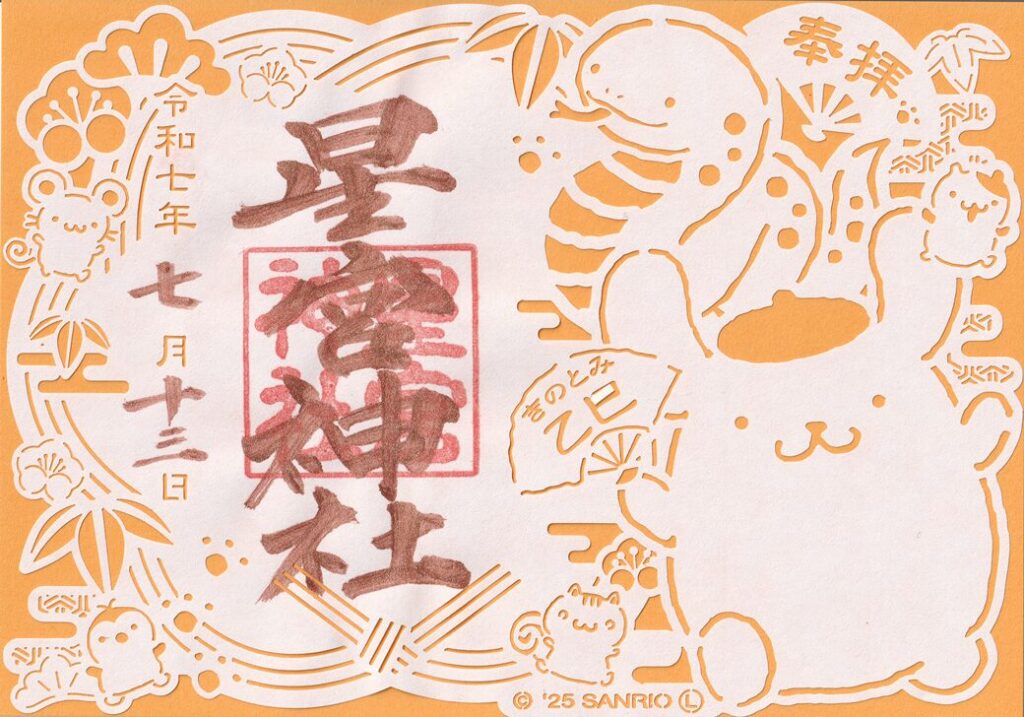 奉拝
きのとみ
乙巳
星宮神社
令和七年 七月十三日
© '25 SANRIO Ⓛ